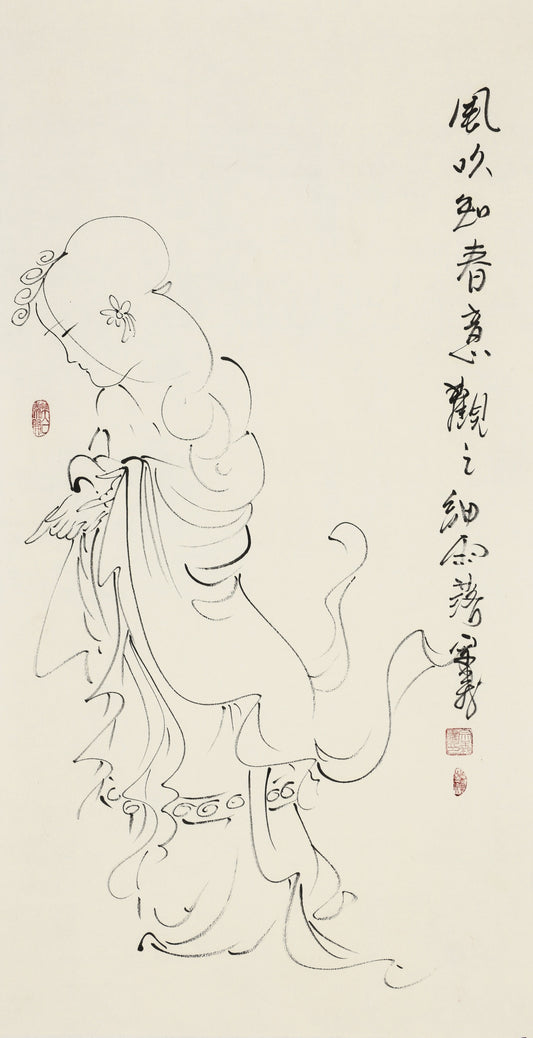 風吹知春意觀之細雨落